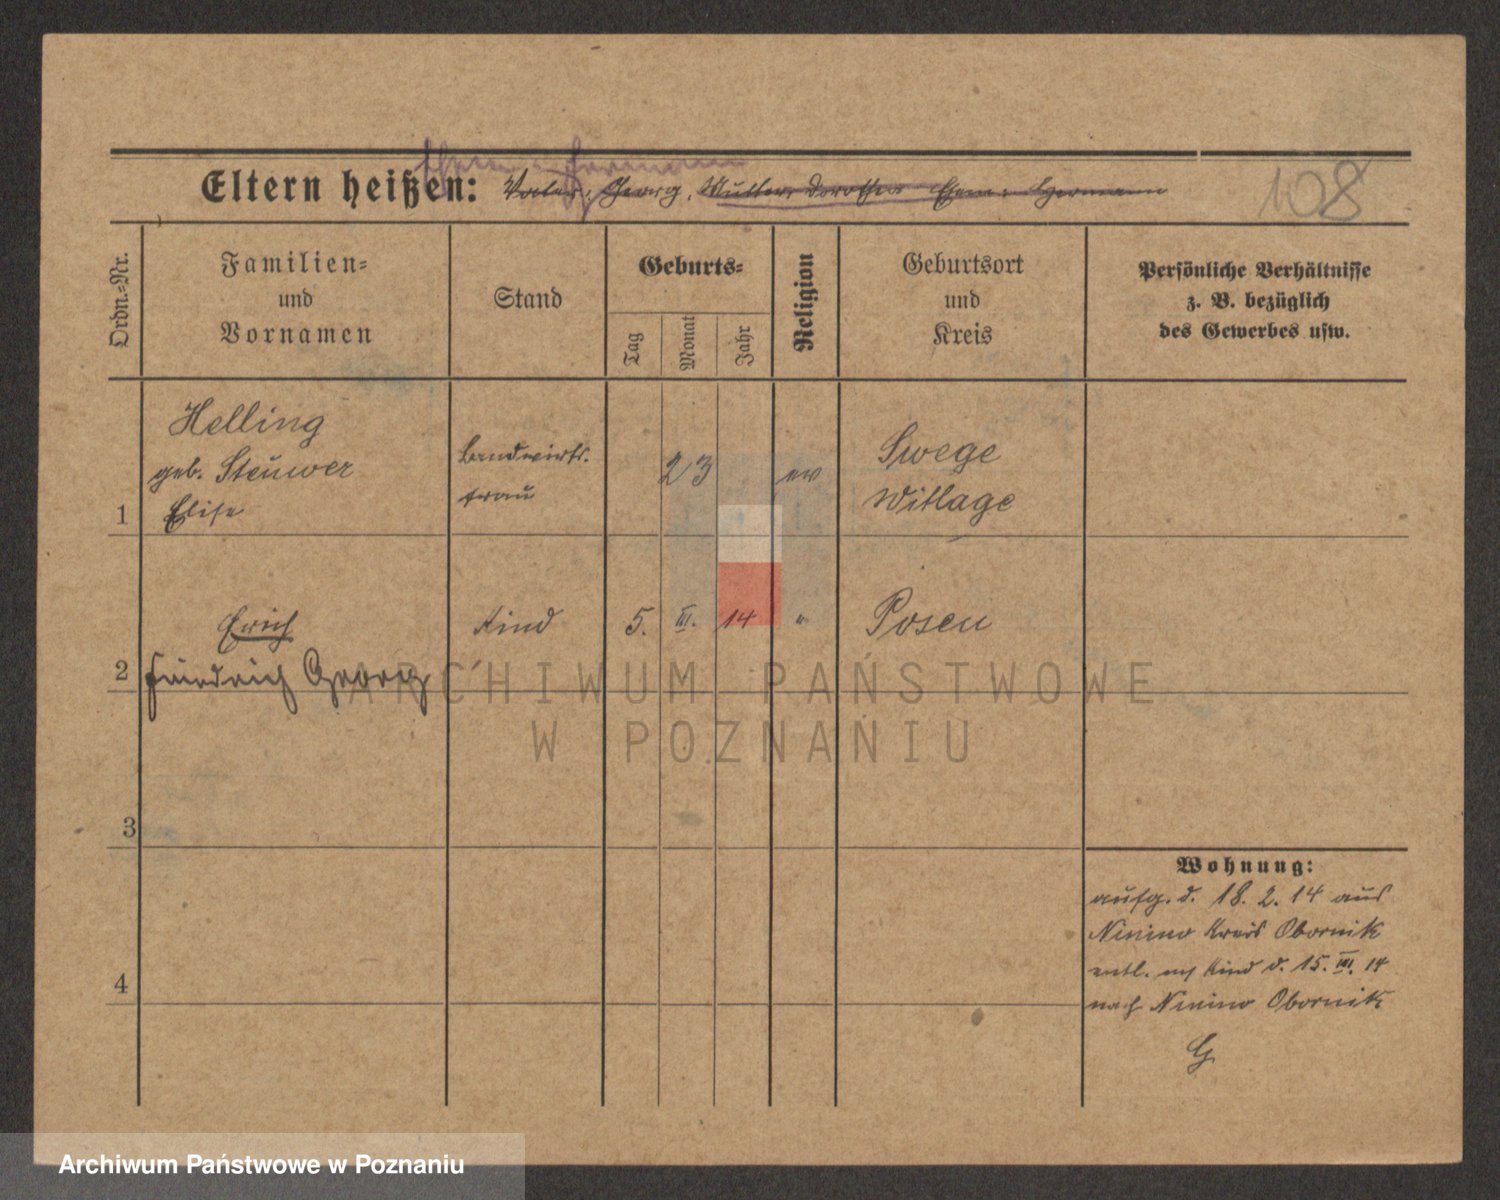 Ehem: Hermann
Eltern heißen: Vater: Georg, Mutter: Dorothea Ehem: Hermann
108
Ordn.-Nr.
Familien-
und
Vornamen
Stand
Geburts-
Tag
Monat
Jahr
Religion
Geburtsort
und
Kreis
Persönliche Verhältnisse
z. B. bezüglich
des Gewerbes usw.
1
Helling
geb. Steuwer
Elise
Landwirts.
frau
23
ev
Swege
Witlage
2
Erich
Friedrich Georg
Kind
5. III. 14
"
Posen
3
4
Wohnung:
aufg. d. 18. 2. 14 aus
Ninino Kreis Obornik
entl. m Kind d. 15. III. 14
nach Ninino Obornik
G
ARCHIWUM PAŃSTWOWE
W POZNANIU
Archiwum Państwowe w Poznaniu